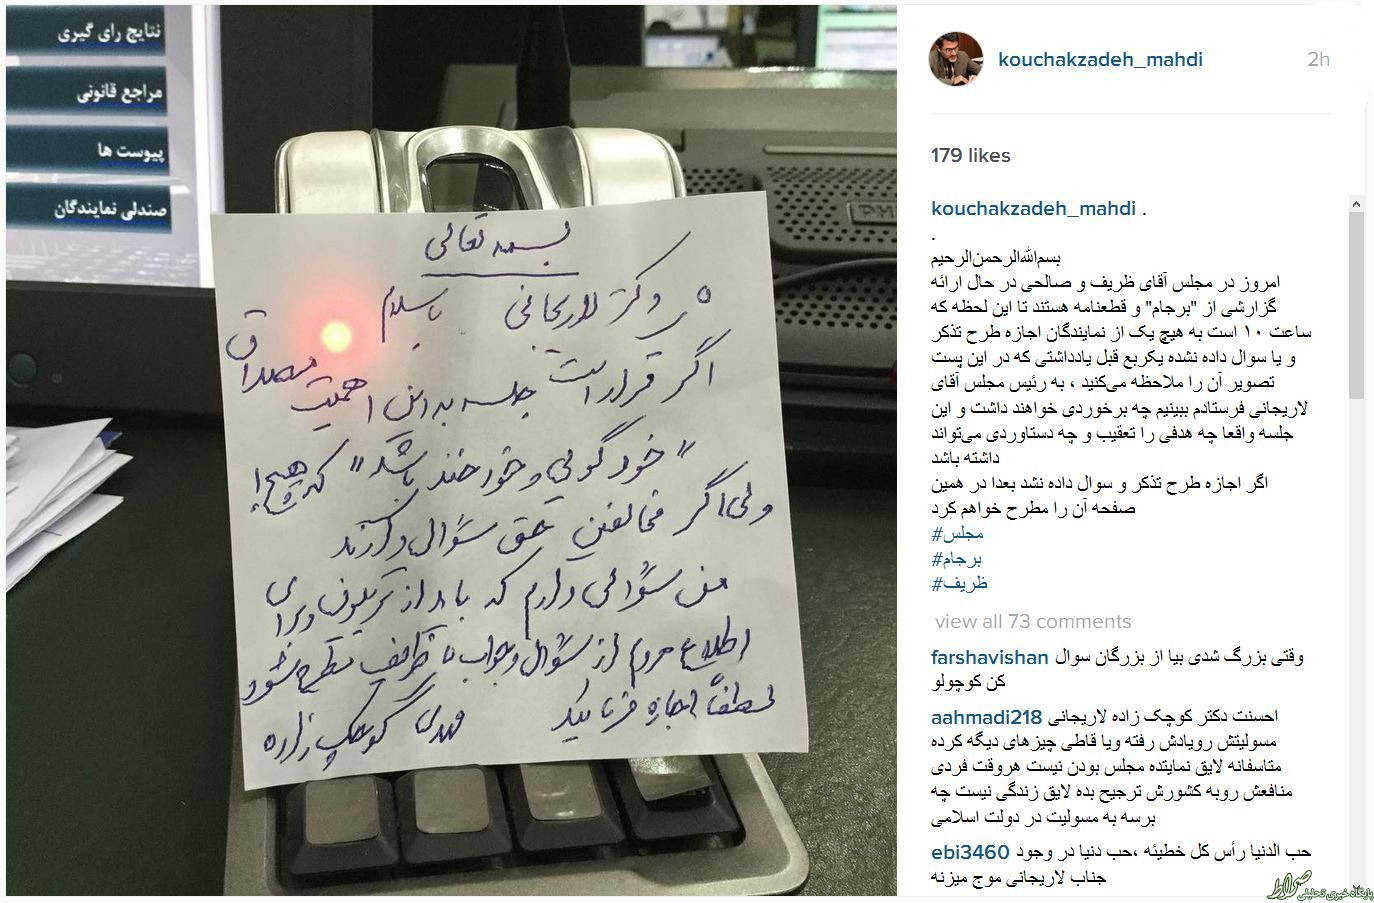 نتایج رای گیری
مراجع قانونی
پیوست ها
صندلی نمایندگان
PHI
بسمه تعالی
دکتر لاریجانی باسلام
اگر قرار است جلسه به این اهمیت مصداق
"خود گویی و خود خند باشد" که هیچ!
ولی اگر مخالفین حق سؤال دارند
من سؤالی دارم که باید از تریبون و برای
اطلاع مردم از سؤال و جواب با ظریف مطرح شود
لطفاً اجازه فرمائید مهدی کوچک زاده
kouchakzadeh_mahdi 2h
179 likes
kouchakzadeh_mahdi .
.
بسم‌الله‌الرحمن‌الرحیم
امروز در مجلس آقای ظریف و صالحی در حال ارائه
گزارشی از "برجام" و قطعنامه هستند تا این لحظه که
ساعت ۱۰ است به هیچ یک از نمایندگان اجازه طرح تذکر
و یا سوال داده نشده یکربع قبل یادداشتی که در این پست
تصویر آن را ملاحظه می‌کنید ، به رئیس مجلس آقای
لاریجانی فرستادم ببینیم چه برخوردی خواهند داشت و این
جلسه واقعا چه هدفی را تعقیب و چه دستاوردی می‌تواند
داشته باشد
اگر اجازه طرح تذکر و سوال داده نشد بعدا در همین
صفحه آن را مطرح خواهم کرد
#مجلس
#برجام
#ظریف
view all 73 comments
farshavishan وقتی بزرگ شدی بیا از بزرگان سوال
کن کوچولو
aahmadi218 احسنت دکتر کوچک زاده لاریجانی
مسولیتش رویادش رفته ویا قاطی چیزهای دیگه کرده
متاسفانه لایق نماینده مجلس بودن نیست هروقت فردی
منافعش روبه کشورش ترجیح بده لایق زندگی نیست چه
برسه به مسولیت در دولت اسلامی
ebi3460 حب الدنیا رأس کل خطیئه ،حب دنیا در وجود
جناب لاریجانی موج میزنه
صراط
پایگاه خبری تحلیلی